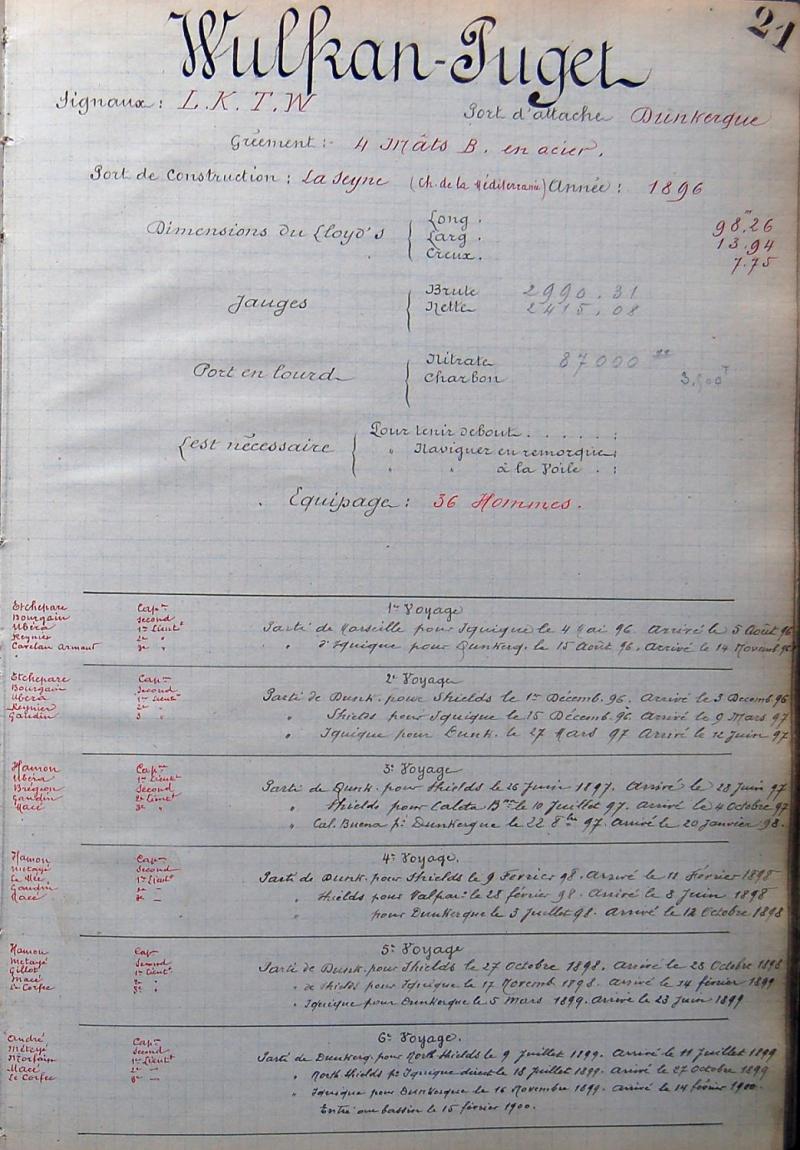 21
Wulfran-Puget
Signaux : L. K. T. W
Port d'attache Dunkerque
Gréement :- 4 Mâts B. en acier.
Port de Construction : La Seyne (Ch. de la Méditerranée) Année : 1896
Dimensions du Lloyd's
Long. 98m,26
Larg. 13,94
Creux. 7.75
Jauges
Brute 2990.31
Nette 2415,08
Port en lourd
Nitrate 87000
Charbon 3.500T
Lest nécessaire
Pour tenir debout . . . . . . :
" Naviguer en remorque :
" " à la Voile . :
Equipage : 36 Hommes.
1er Voyage
Etchepare Capne
Bourgain Second
Ubéra 1er Lieutt
Reynier 2e "
Cavelan Armaut 3e "
Parti de Marseille pour Iquique le 4 Mai 96. Arrivé le 5 Août 96
" d'Iquique pour Dunkerq. le 15 Août 96. Arrivé le 14 Novemb 96
2e Voyage
Etchepare Capne
Bourgain Second
Ubéra 1er Lieutt
Reynier 2e "
Gaudin 3 "
Parti de Dunk. pour Shields le 1er Décemb. 96. Arrivé le 3 Décemb. 96
" Shields pour Iquique le 15 Décemb. 96 Arrivé le 9 Mars 97
" Iquique pour Dunk. le 27 Mars 97 Arrivé le 12 Juin 97
3e Voyage
Hamon Capne
Ubéra 1er Lieutt
Brégeon Second
Gaudin 2e Lieutt
Macé 3e "
Parti de Dunk. pour Shields le 26 Juin 1897. Arrivé le 28 Juin 97
" Shields pour Caleta Bna le 10 Juillet 97. Arrivé le 4 Octobre 97
" Cal. Buena pr Dunkerque le 22 8bre 97. Arrivé le 20 Janvier 98.
4e Voyage.
Hamon Capne
Métayé Second
1er Lieutt
Gaudin 2e —
Macé 3e —
Parti de Dunk. pour Shields le 9 Février 98. Arrivé le 11 Février 1898
" Shields pour Valpar. le 28 février 98. Arrivé le 8 Juin 1898
" pour Dunkerque le 3 Juillet 98. Arrivé le 12 Octobre 1898
5e Voyage
Hamon Capne
Métayé Second
Gillot 1er Lieutt
Macé 2e "
Le Corfec 3e "
Parti de Dunk. pour Shields le 27 Octobre 1898. Arrivé le 28 Octobre 1898
" de Shields pour Iquique le 17 Novemb 1898. Arrivé le 14 février 1899
" Iquique pour Dunkerque le 5 Mars 1899. Arrivé le 23 Juin 1899
6e Voyage.
André Capne
Métayé Second
Morfouin 1er Lieutt
Macé 2e —
Le Corfec 3e —
Parti de Dunkerq. pour North Shields le 9 Juillet 1899. Arrivé le 11 Juillet 1899
" North Shields pr Iquique direct le 18 Juillet 1899. Arrivé le 27 Octobre 1899
" Iquique pour Dunkerque le 16 Novembre 1899. Arrivé le 14 février 1900.
Entré au bassin le 15 février 1900.